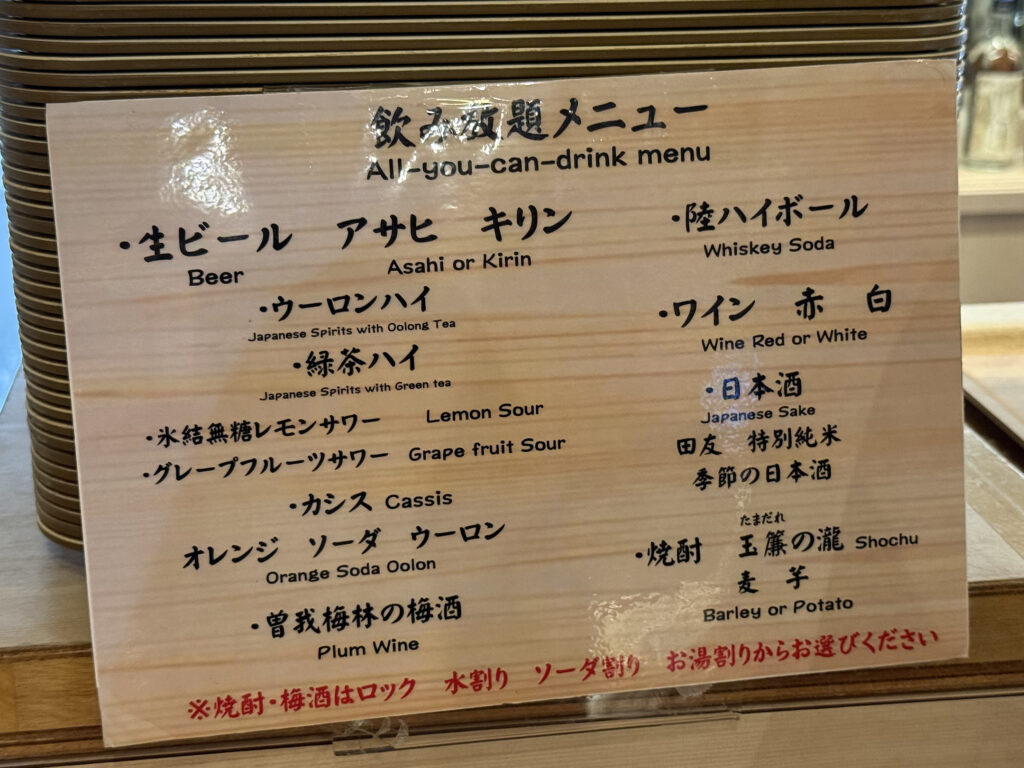 飲み放題メニュー
All-you-can-drink menu
・生ビール　アサヒ　キリン
Beer　Asahi or Kirin
・ウーロンハイ
Japanese Spirits with Oolong Tea
・緑茶ハイ
Japanese Spirits with Green tea
・氷結無糖レモンサワー　Lemon Sour
・グレープフルーツサワー　Grape fruit Sour
・カシス Cassis
オレンジ　ソーダ　ウーロン
Orange Soda Oolon
・曽我梅林の梅酒
Plum Wine
・陸ハイボール
Whiskey Soda
・ワイン　赤　白
Wine Red or White
・日本酒
Japanese Sake
田友　特別純米
季節の日本酒
たまだれ
・焼酎　玉簾の瀧 Shochu
麦　芋
Barley or Potato
※焼酎・梅酒はロック　水割り　ソーダ割り　お湯割りからお選びください